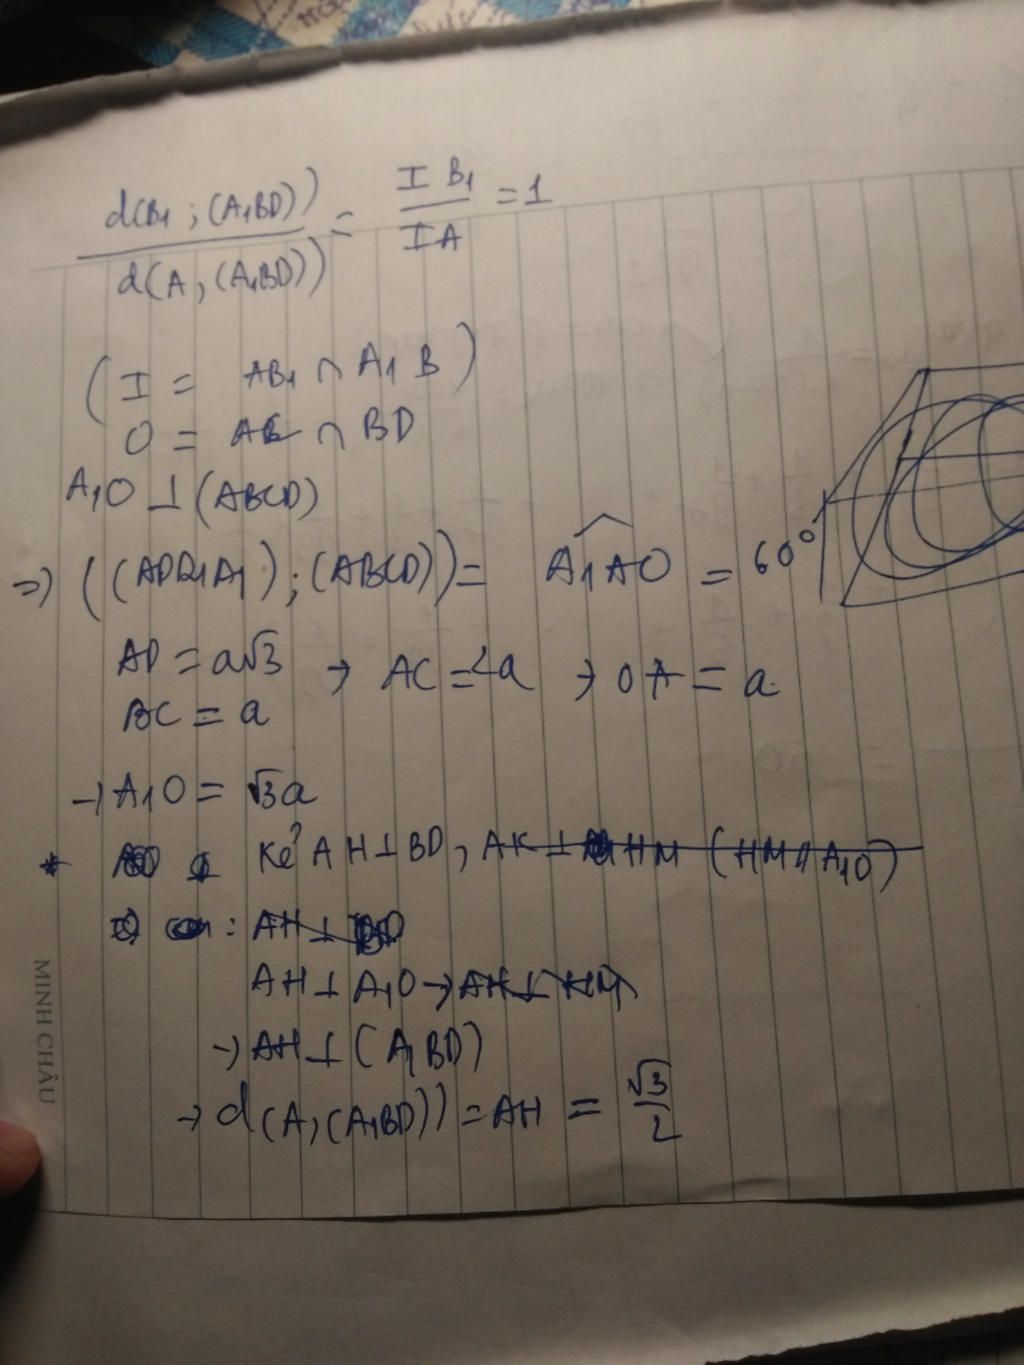 d(B₁ ; (A₁BD)) / d(A, (A₁BD)) = I B₁ / IA = 1
( I = AB₁ ∩ A₁ B )
O = AC ∩ BD
A₁O ⊥ (ABCD)
=> ((ADD₁A₁) ; (ABCD)) = A₁AO = 60°
AD = a√3 → AC = 2a → OA = a
BC = a
→ A₁O = √3a
* Kẻ AH ⊥ BD, AK ⊥ HM (HM // A₁O)
: AH ⊥ BD
AH ⊥ A₁O → AH ⊥ HM
→ AH ⊥ (A₁BD)
→ d(A, (A₁BD)) = AH = √3 / 2
MINH CHÂU